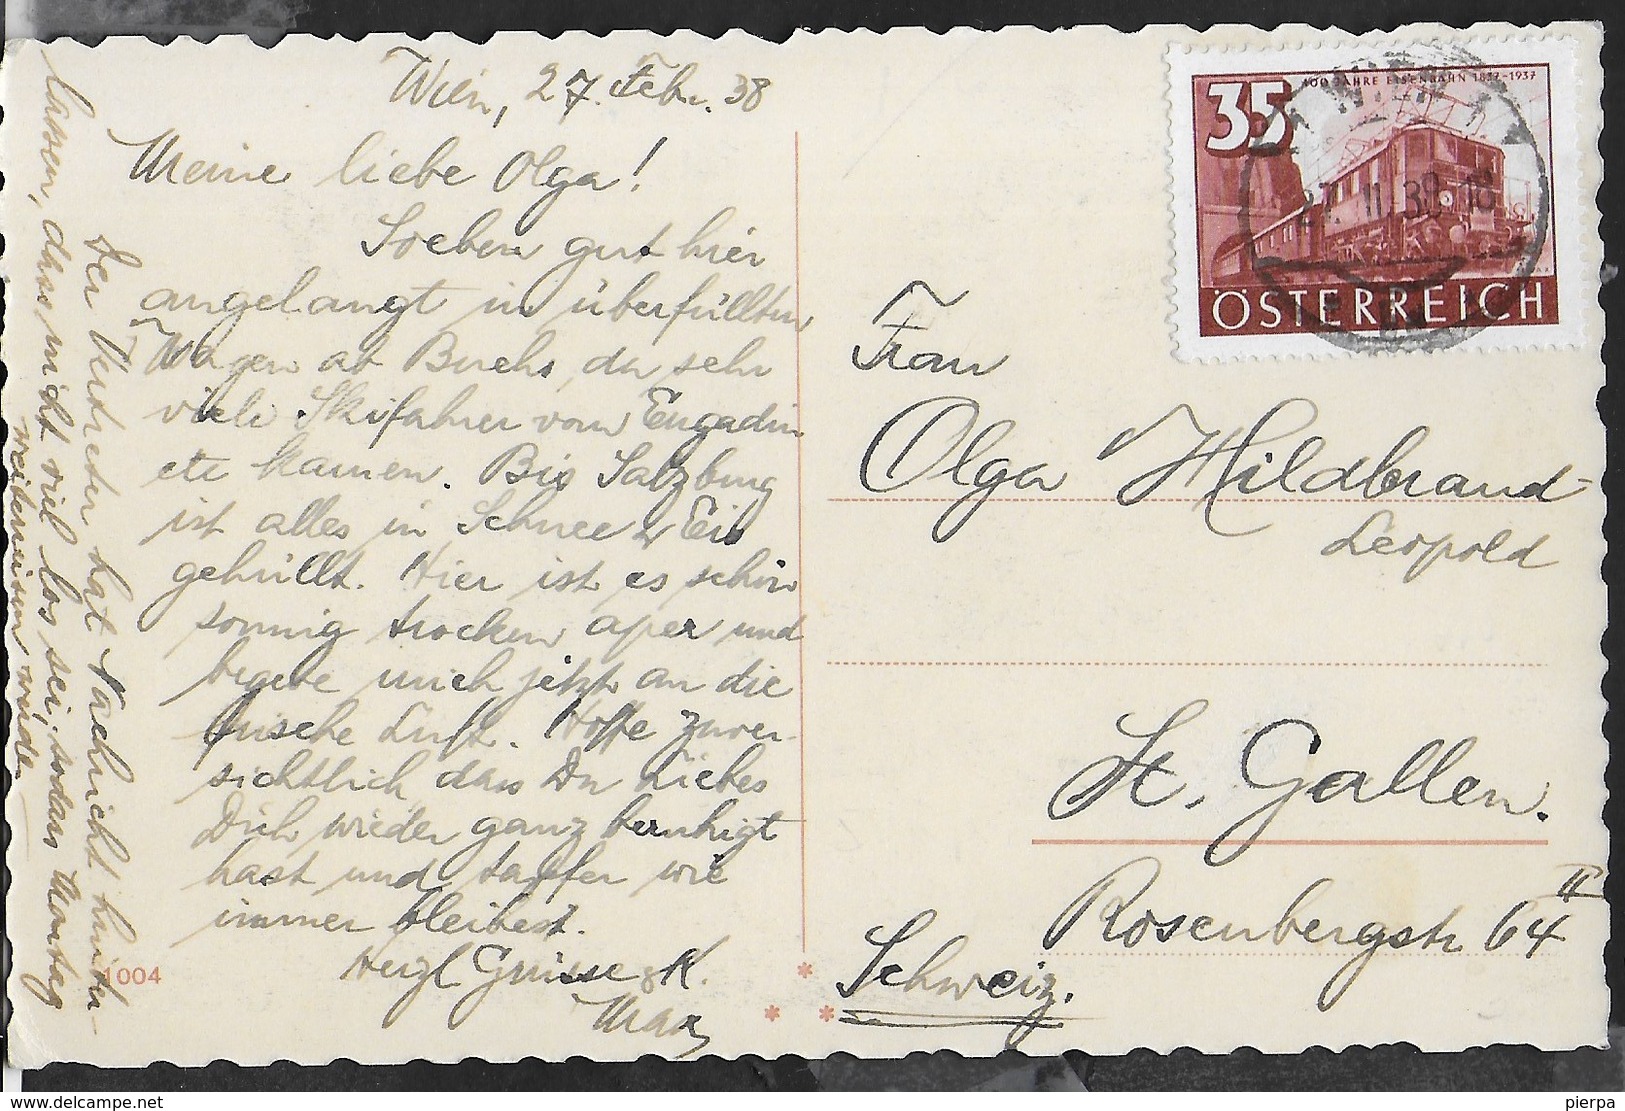 Wien, 27. Feb. 38
Meine liebe Olga!
Soeben gut hier
angelangt in überfüllten
Wagen ab Buchs, da sehr
viele Skifahrer vom Engadin
etc kamen. Bis Salzburg
ist alles in Schnee & Eis
gehüllt. Hier ist es schön
sonnig trocken aper und
begebe mich jetzt an die
frische Luft. Hoffe zuver-
sichtlich dass Du Liebes
Dich wieder ganz beruhigt
hast und tapfer wie
immer bleibest.
Herzl Grüsse & K.
Max
Der Vertreter hat Nachricht hinter-
lassen, dass nicht viel los sei, sodass Montag
weiterreisen würde
1004
35
100 JAHRE EISENBAHN 1837-1937
ÖSTERREICH
WIEN
27. II. 38 18
Frau
Olga Hildbrand-
Leopold
St. Gallen.
Rosenbergstr 64 II
Schweiz.
www.delcampe.net
pierpa